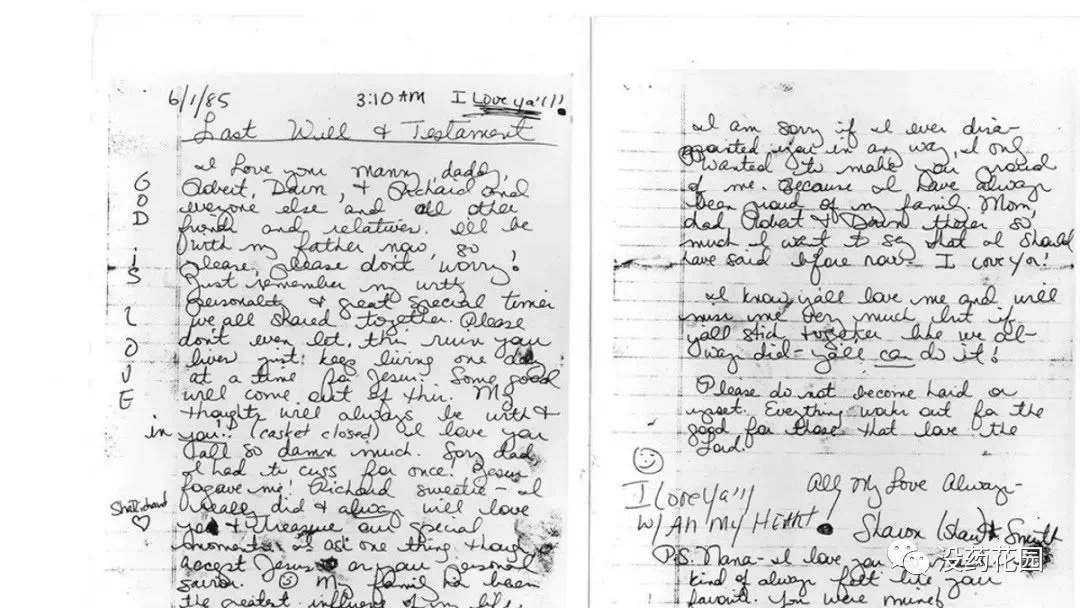 6/1/85 3:10 AM I Love ya'll!
Last Will & Testament
GOD iS LOVE
I Love you mommy, daddy,
Robert, Dawn, & Richard and
everyone else and all other
friends and relatives. I'll be
with my father now, so
please, please don't worry!
Just remember my witty
personality & great special times
we all shared together. Please
don't ever let this ruin your
lives just keep living one day
at a time for Jesus. Some good
will come out of this. My
thoughts will always be with &
in you!! (casket closed) I love you
all so damn much. Sorry dad
I had to cuss for once! Jesus
forgave me! Richard sweetie - I
really did & always will love
you & treasure our special
moments. I ask one thing though
accept Jesus as your personal
savior. My family has been
the greatest influence of my life.
I am sorry if I ever disa-
pointed you in any way, I only
wanted to make you proud
of me. Because I have always
been proud of my family. Mom,
dad Robert & Dawn theres so
much I want to say that I should
have said before now - I love you!
I know yall love me and will
miss me very much but if
yall stick together like we al-
ways did - yall can do it!
Please do not become hard or
upset. Everything works out for the
good for those that love the
Lord.
All My Love Always -
I Love Ya'll
W/All My Heart!
Sharon (Shari) Smith
P.S. Nana - I love you
kind of always felt like your
favorite. You were mine!
没药花园